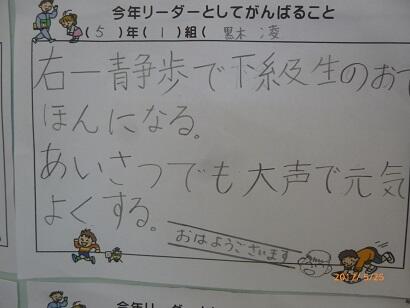 今年リーダーとしてがんばること
(5)年(1)組(黒木 凌
右一静歩で下級生のおて
ほんになる。
あいさつでも大声で元気
よくする。
おはようございます
2017/5/25